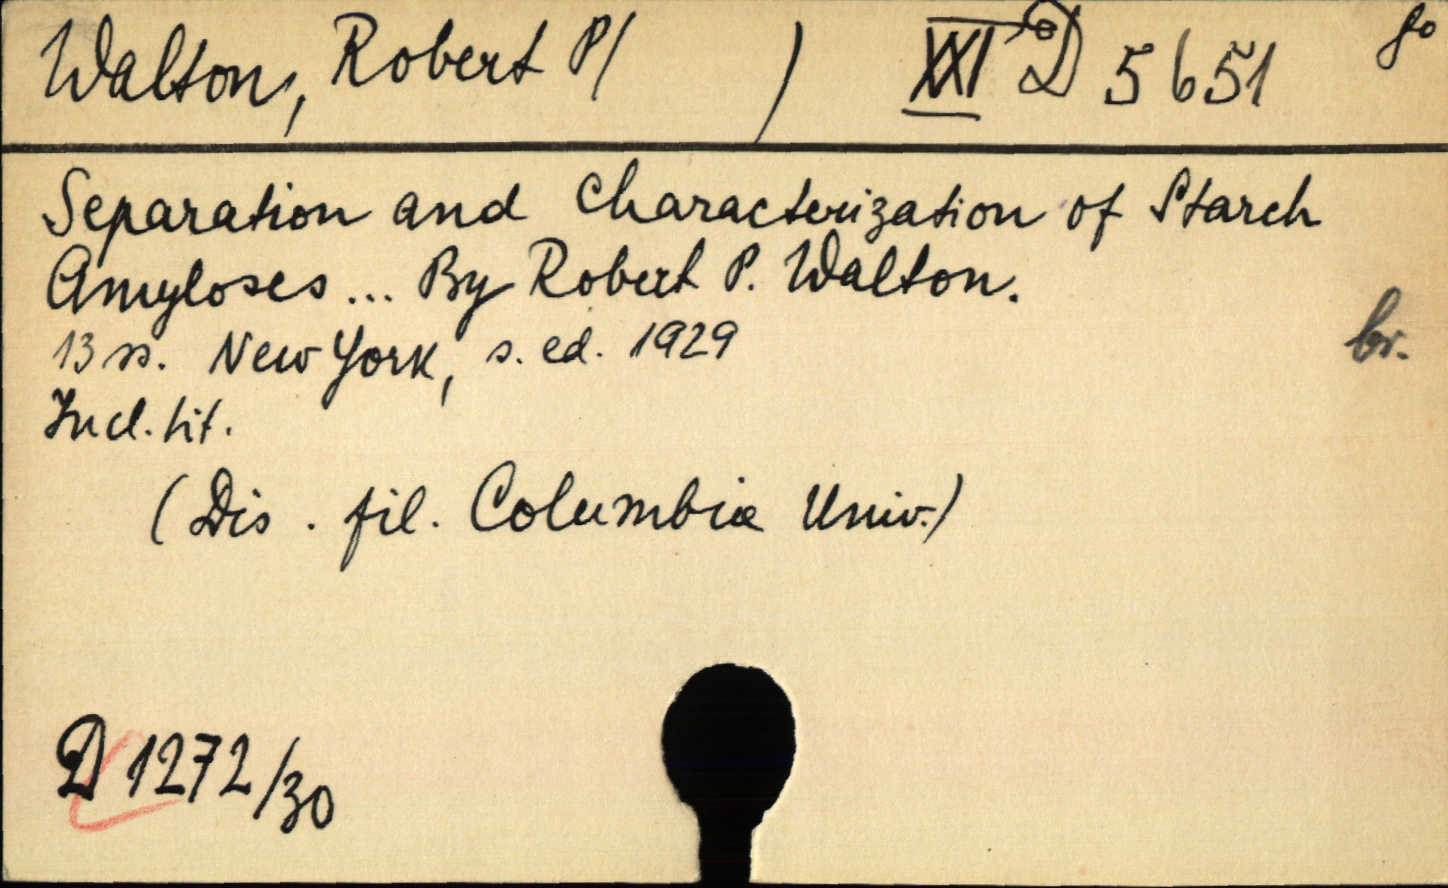 Walton, Robert P/ ) XXI D 5651
Separation and Characterization of Starch
Amyloses ... By Robert P. Walton.
13 ss. New York, s. ed. 1929
br.
Incl. tit.
(Dis. fil. Columbia Univ.)
D 1272/30